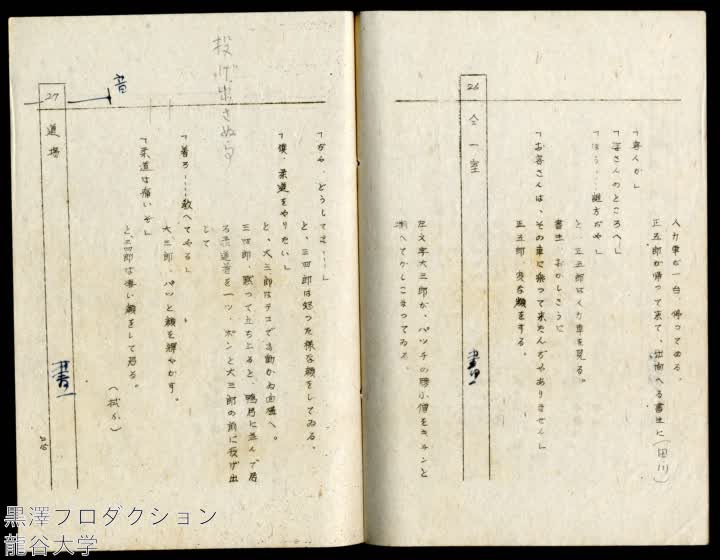 人力車が一台、帰ってゐる。
正五郎が帰って来て、出向へる書生に（田川）
「客人か」
「姿さんのところへ」
「ほう……誰方ぢや」
と、正五郎は人力車を見る。
書生、おかしさうに
「お客さんは、その車に乗って来たんぢやありません」
正五郎、変な顔をする。
26 仝 一室
書一
左文字大三郎が、パッチの膝小僧をキチンと
揃へてかしこまつてゐる。
音
投げ出さぬ
「ぢや、どうして又……」
と、三四郎は怒つた様な顔をしてゐる。
「僕、柔道をやりたい」
と、大三郎はテコでも動かぬ面構へ。
三四郎、黙って立ち上ると、鴨居に並んで居
る柔道着を一ツ、ポンと大三郎の前に投げ出
して
「着ろ……教へてやる」
大三郎、パッと顔を輝やかす。
「柔道は痛いぞ」
と、三四郎は凄い顔をして居る。
27 道場
書一
黒澤プロダクション
龍谷大学